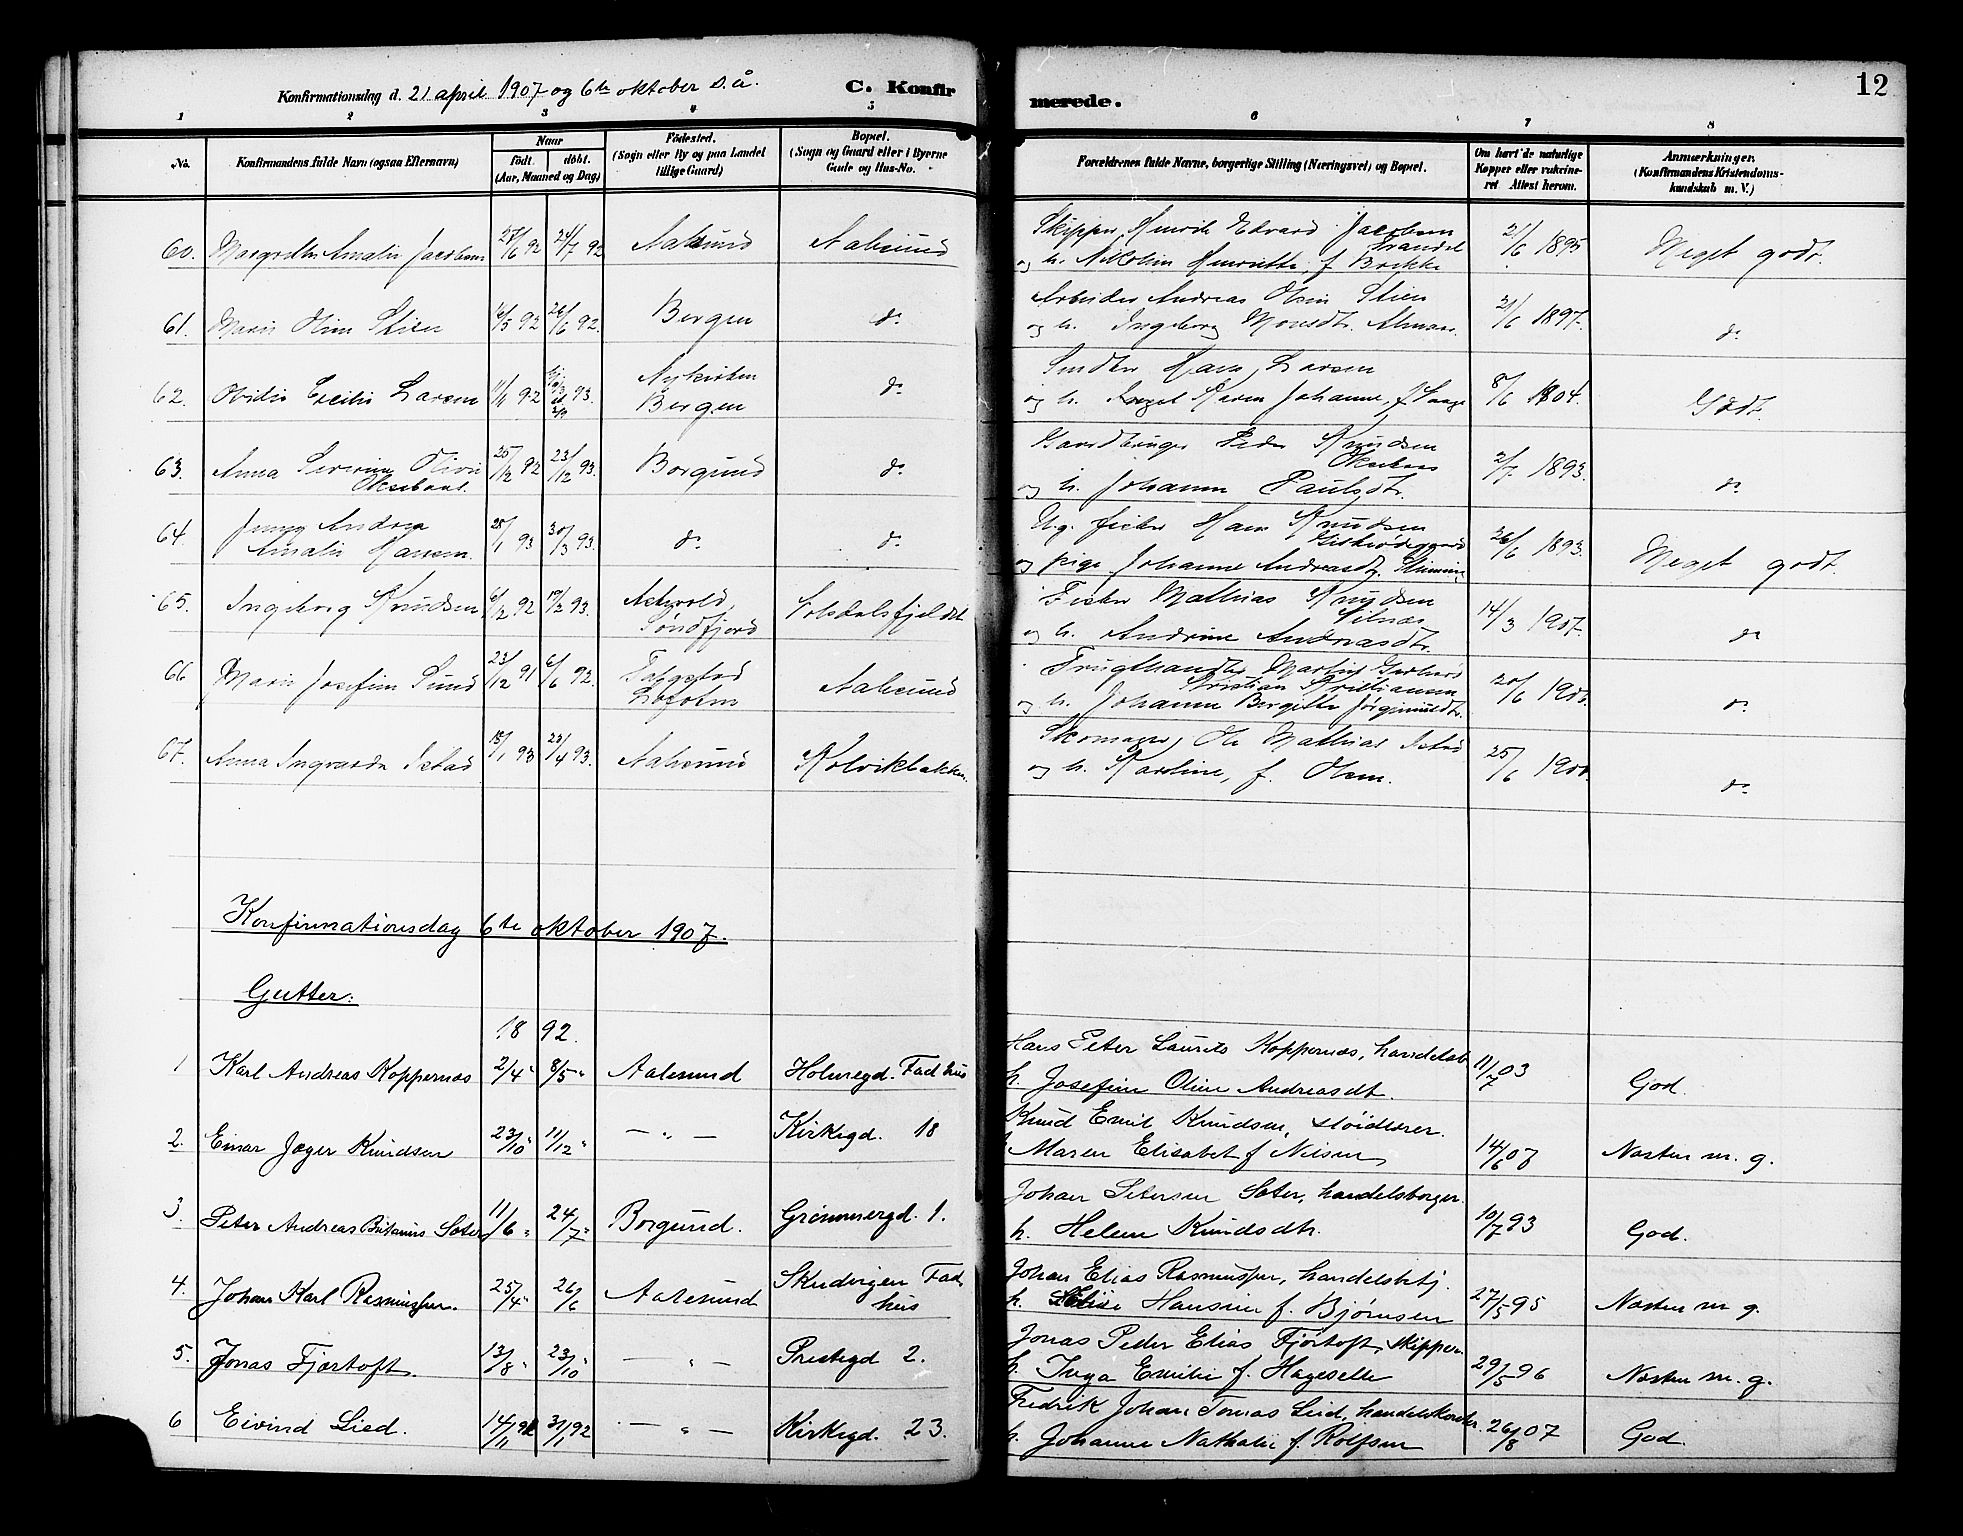 Konfirmationsdag d. 21 april 1907 og 6te oktober s.å.
C. Konfir
merede.
12
1 2 3 4 5 6 7 8
No.
Konfirmandens fulde Navn (ogsaa Efternavn)
Naar
født. døbt.
(Aar, Maaned og Dag)
Fødested.
(Sogn eller By og paa Landet
tillige Gaard)
Bopæl.
(Sogn og Gaard eller i Byerne
Gade og Hus-No.
Forældrenes fulde Navne, borgerlige Stilling (Næringsvei) og Bopæl.
Om havt de naturlige
Kopper eller vakcine-
ret Attest herom.
Anmærkninger.
(Konfirmandens Kristendoms-
kundskab m. V.)
60. Amalie Jacobsen 27/6 92 24/7 92 Aalesund Aalesund Skipper Henrik Edvard Jacobsen
og h. Henriette f. Brekke 21/6 1895 Meget godt.
61. Marie Stien 6/5 92 26/6 92. Bergen do Arbeider Andreas Olsen Stien
og h. Ingeborg 21/6 1897. do
62. Cecilie Larsen 11/11 92 93. Nykirken
Bergen do Hans Larsen
og h. Karen Johanne, f. 8/6 1804. Godt.
63. Anna Severine
25/12 92 23/12 93. Borgund do Peder Knudsen
og h. Johanne Paulsdtr. 2/7 1893. do
64. Jenny Andrea
Amalie Hansen. 25/1 93 30/3 93. do do Ug. fisker Hans Knudsen
og pige Johanne Andreasdtr. 26/6 1893. Meget godt.
65. Ingeborg Knudsen 6/12 92 19/2 93. Askvold,
Søndfjord Volsdalsfjeldet Fisker Mathias Knudsen
og h. Andrine Andreasdtr. 14/3 1907. do
66 Marie Josefine Sund 23/12 91 6/6 92. Lofoten Aalesund Frugthandler Martin
Kristian Kristiansen
og h. Johanne Bergitte 20/6 1900. do
67. Anna Ingvarda Istad 15/1 93 23/4 93. Aalesund Kolvikbakken. Skomager, Ole Mathias Istad
og h. Karoline, f. Olsen. 25/6 1900. do
Konfirmationsdag 6te oktober 1907.
Gutter:
18 92.
1 Karl Andreas Koppernæs 2/4 " 8/5 " Aalesund Holmegd. Fad hus Hans Peter Laurits Koppernæs, handelsb.
h. Josefine Oline Andreasdt. 11/7 03 God.
2. Einar Jæger Knudsen 23/10 " 11/12 " — " — Kirkegd. 18 Knud Emil Knudsen, sløidlærer.
h Maren Elisabet f Nilsen 14/6 07 Næsten m. g.
3. Peter Andreas Sæter 11/6 " 24/7 " Borgund. Grimmergd. 1. Johan Petersen Sæter, handelsborger.
h. Helene Knudsdtr. 10/7 93 God.
4. Johan Karl Rasmussen. 25/4 " 26/6 Aalesund Skudvigen Fad
hus Johan Elias Rasmussen, handelsbetj.
h. Hansine f. Bjørnsen 27/5 95 Næsten m g.
5. Jonas Fjørtoft. 13/8 " 23/10 " — " — Prestegd 2. Jonas Peder Elias Fjørtoft, skipper.
h. Inga Emilie f. Hageselle 29/5 96 Næsten m. g.
6 Eivind Lied. 14/11 91 31/1 92 — " — Kirkegd. 23. Fredrik Johan Tomas Lied,
h. Johanne Nathalie f. Rolfsen 26/8 07 God.